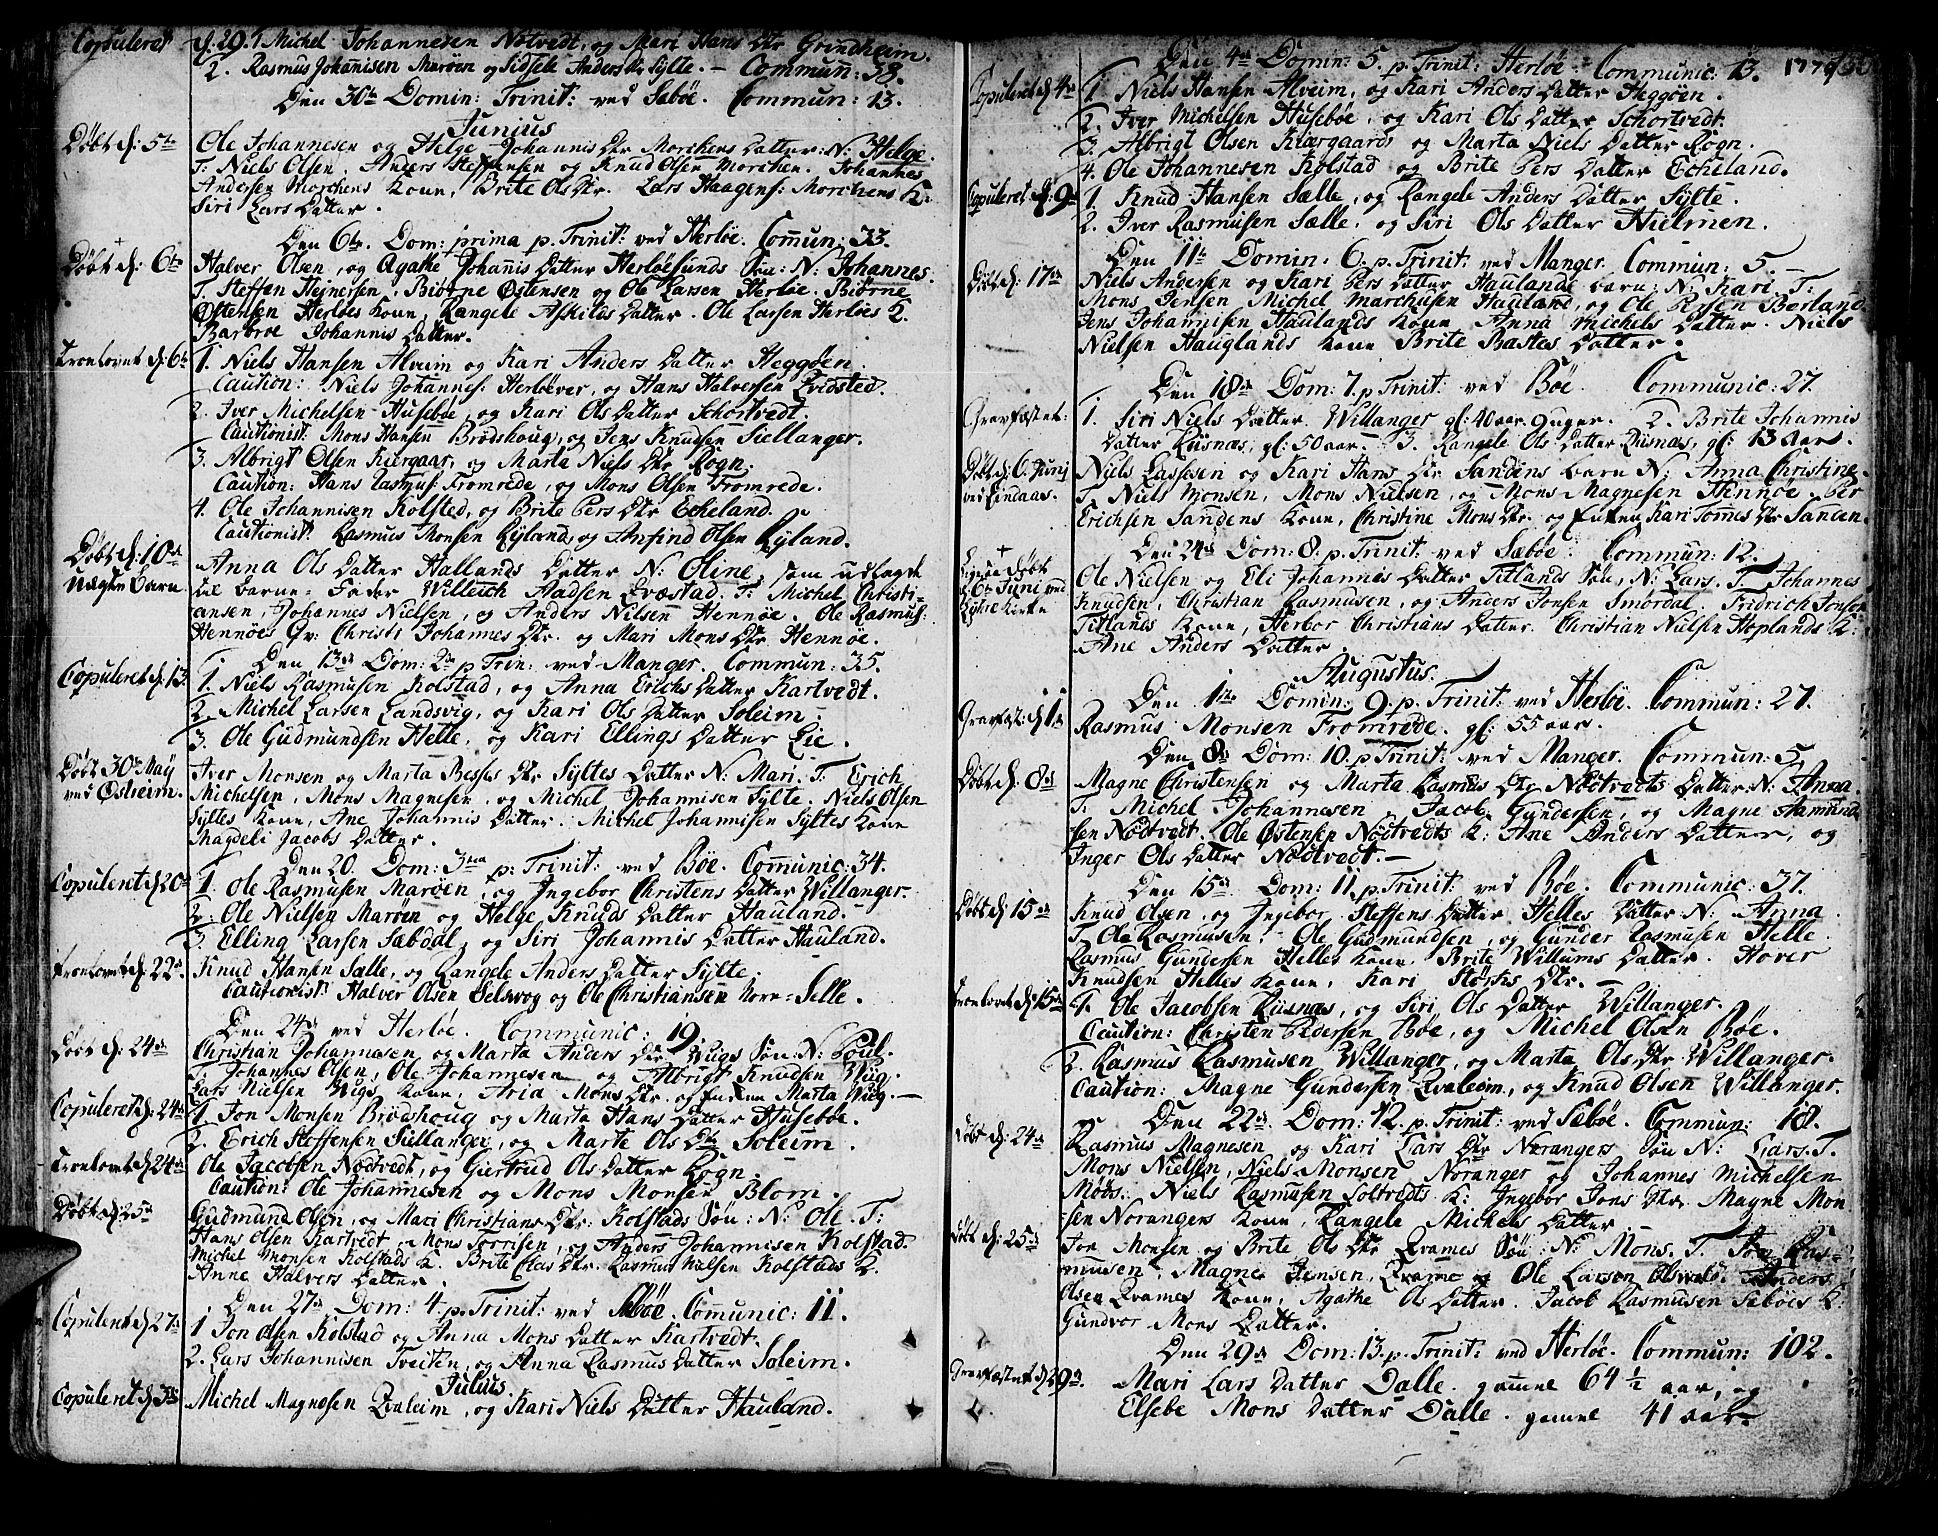 Copuleret d. 29. 1 Michel Johannesen Nøtvedt, og Mari Hans Dtr Grindheim.
2. Rasmus Johannisen Marøen og Sidsele Anders Dtr Sylte. – Commun: 58.
Den 30te Domin: Trinit: ved Sæbøe. Commun: 13.
Junius
Døbt d: 5te Ole Johannesen og Helge Johannis Dtr Morchens Datter: N: Helge.
T: Niels Olsen, Anders Steffensen og Knud Olsen Morchen. Johannes
Andersen Morchens Kone, Brite Ols Dtr. Lars Haagens: Morchens K:
Siri Lars Datter.
Den 6te. Dom: prima p. Trinit: ved Herløe. Commun: 33.
Døbt d: 6te Halver Olsen, og Agathe Johannis Datter Herløesunds Søn: N: Johannes.
T. Steffen Hejnersen, Biørne Østensen og Ole Larsen Herløe. Biørne
Østensen Herløes Kone, Rangele Askilds Datter. Ole Larsen Herløes K.
Barbroe Johannis Datter.
Troelovet d. 6te 1. Niels Hansen Alveim og Kari Anders Datter Heggøen
Caution: Niels Johannes: Herløever, og Hans Halversen Qvidsted.
2. Iver Michelsen Husebøe, og Kari Ols Datter Schortvedt.
Cautionist: Mons Hansen Brødshoug, og Jens Knudsen Siellanger.
3. Albrigt Olsen Kiergaar, og Marta Niels Dtr Rogn.
Caution: Hans Rasmus: Fromrede, og Mons Olsen Fromrede.
4. Ole Johannisen Kolsted, og Brite Pers Dtr Echeland.
Cautionist: Rasmus Monsen Ryland, og Anfind Olsen Ryland.
Døbt d: 10de Anna Ols Datter Hallands Datter N: Oline, som udlagde
Uægte Barn til barne-Fader Willeich Aadsen Qvæstad. T: Michel Christi-
ansen, Johannes Nielsen, og Anders Nilsen Hennøe. Ole Rasmus:
Hennøes Qv: Christi Johannes Dtr. og Mari Mons Dtr Hennøe.
Den 13de Dom: 2da p Trin: ved Manger. Commun: 35.
Copuleret d. 13. 1. Niels Rasmusen Kolstad, og Anna Erichs Datter Kartvedt.
2. Michel Larsen Landsvig, og Kari Ols Datter Soleim.
3. Ole Gudmundsen Helle, og Kari Ellings Datter Lie.
Døbt 30te May Iver Monsen og Marta Besses Dtr Syltes Datter N: Mari. T: Erich
ved Østreim. Michelsen, Mons Magnesen, og Michel Johannisen Sylte. Niels Olsen
Syltes Kone, Ane Johannis Datter. Michel Johannisen Syltes Kone
Magdeli Jacobs Datter.
Den 20. Dom: 3tia p: Trinit: ved Bøe. Communic: 34.
Copuleret d 20de 1. Ole Rasmusen Marøen, og Ingebor Christens Datter Willanger.
2. Ole Nielsen Marøen og Helge Knuds Datter Hauland.
3. Elling Larsen Sæbdal, og Siri Johannis Datter Hauland.
Troelovet d. 22de Knud Hansen Sælle, og Rangele Anders Datter Sylte.
Cautionist: Halver Olsen Selsvog og Ole Christiansen Norre-Selle.
Den 24de ved Herløe. Communic: 19.
Døbt d: 24de Christian Johannesen, og Marta Anders Dtr Wiigs Søn: N: Poul.
T. Johannes Olsen, Ole Johannesen og Albrigt Knudsen Wiig.
Lars Nielsen Wigs Kone, Aria Mons Dtr. og Enken Marta Wiig. –
Copuleret d. 24de 1. Jon Monsen Brødshoug og Marta Hans Datter Husebøe.
2. Erich Steffensen Siellanger, og Marte Ols Dtr Soleim.
Troelovet d 24de Ole Jacobsen Nødtvedt, og Giertrud Ols Datter Rogn.
Caution: Ole Johannesen og Mons Monsen Blom.
Døbt d 25de Gudmund Olsen, og Mari Christians Dtr: Kolstads Søn: N: Ole. T:
Hans Olsen Kartvedt, Mons Torrisen, og Anders Johannisen Kolstad.
Michel Monsen Kolstads K. Brite Elas Dtr. Rasmus Nielsen Kolstads K.
Anne Halvers Datter.
Den 27de Dom: 4. p. Trinit: ved Sæbøe. Communic: 11.
Copuleret d 27de 1 Jon Olsen Kolstad og Anna Mons Datter Kartvedt.
2. Lars Johannisen Tveiten, og Anna Rasmus Datter Soleim.
Julius.
Copuleret d 3de Michel Magnesen Qvaleim, og Kari Niels Datter Hauland.
Den 4de Domin: 5. p. Trinit: Herløe. Communic: 13. 1779
Copuleret d 4de 1 Niels Hansen Alveim, og Kari Anders Datter Heggøen.
2. Iver Michelsen Husebøe, og Kari Ols Datter Schortvedt.
3. Albrigt Olsen Kiærgaard og Marta Niels Datter Rogn.
4. Ole Johannesen Kolstad og Brite Pers Datter Echeland.
Copuleret d. 9de 1. Knud Hansen Sælle, og Rangele Anders Datter Sylte.
2. Iver Rasmusen Sælle, og Siri Ols Datter Hielmen.
Den 11te Domin. 6. p. Trinit: ved Manger. Commun: 5. –
Døbt d: 17de Niels Andersen og Kari Pers Datter Haulands barn: N: Kari. T:
Mons Jensen, Michel Marchusen Hauland, og Ole Persen Børland.
Jens Johannisen Haulands Kone Anna Michels Datter. Niels
Nielsen Hauglands Kone Brite Bastes Datter.
Den 18de Dom: 7. p Trinit: ved Bøe. Communic: 27.
Gravfæstet: 1. Siri Niels Datter Willanger gl: 40 aar 9 uger. 2. Brite Johannis
Datter Riisnæs, gl: 50 aar – 3. Rangele Ols Datter Riisnæs, gl: 13 Aar.
Døbt d. 6. Junj Niels Lassesen og Kari Hans Dtr Sandens barn N: Anna Christine.
ved Lindaas. T. Niels Monsen, Mons Nielsen, og Mons Magnesen Hennøe. Per
Erichsen Sandens Kone, Christine Mons Dtr. og Enken Kari Tomes Dtr Sanden.
Den 24de Dom: 8. p. Trinit: ved Sæbøe. Commun: 12.
Ligesaa Døbt Ole Nielsen og Eli Johannis Datter Titlands Søn, N: Lars. T. Johannes
d. 6te Junj ved Knudsen, Christian Rasmusen, og Anders Jonsen Smørdal. Fridrich Jonsen
Kirke Titlands Kone, Herbor Christians Datter. Christian Nielsen Hoplands K:
Ane Anders Datter.
Augustus.
Den 1ste Domin: 9. p. Trinit: ved Herløe. Commun: 27.
Gravfæst: d. 1ste Rasmus Monsen Fromrede. gl: 55 aar.
Den 8de Dom: 10. p Trinit: ved Manger. Commun: 5.
Døbt d: 8de Magne Christensen og Marta Rasmus Dtr Nødtvedts Datter: N: Anna
T. Michel Johannesen, Jacob Gundersen, og Magne Aamund-
sen Nødtvedt. Ole Østensen Nødtvedts K: Ane Anders Datter, og
Inger Ols Datter Nødtvedt. –
Den 15de Dom: 11. p. Trinit: ved Bøe. Communic: 37.
Døbt d: 15de Knud Olsen, og Ingebor Steffens Datter Helles Datter N: Anna
T. Ole Rasmusen. Ole Gudmundsen, og Gunder Rasmusen Helle.
Rasmus Gundersen Helles Kone, Brite Willums Datter. Hover
Knudsen Helles Kone, Kari Størks Dtr. –
Troelovet d: 15de 1. Ole Jacobsen Riisnæs, og Siri Ols Datter Willanger.
Caution: Christen Pedersen Bøe, og Michel Olsen Bøe.
2. Rasmus Rasmusen Willanger, og Marta Ols Dtr Willanger.
Caution: Magne Gundersen Qvaleim, og Knud Olsen Willanger.
Den 22de Dom: 12. p. Trinit: ved Sæbøe. Commun: 18.
Døbt d: 24de Rasmus Magnesen og Kari Lars Dtr Norangers Søn N: Lars. T.
Mons Nielsen, Niels Monsen Noranger og Johannes Michelsen
Møds. Niels Rasmusen Soltvedts K: Ingebor Jons Dtr. Magne Mon
sen Norangers Kone, Rangele Michels Datter.
Døbt d: 25de Jon Monsen og Brite Ols Dtr Qvames Søn N: Mons. T. Jon Ras-
musen, Magne Jensen, Qvame og Ole Larsen. Anders
Olsen Qvames Kone, Agathe Ols Datter. Jacob Rasmusen Sæbøes K:
Gundvor Mons Datter.
Den 29de Dom: 13. p. Trinit: ved Herløe. Commun: 102.
Gravfæstet d 29de Mari Lars Datter Dalle. gamel 64½ aar, og
Elsebe Mons Datter Dalle. gamel 41 aar